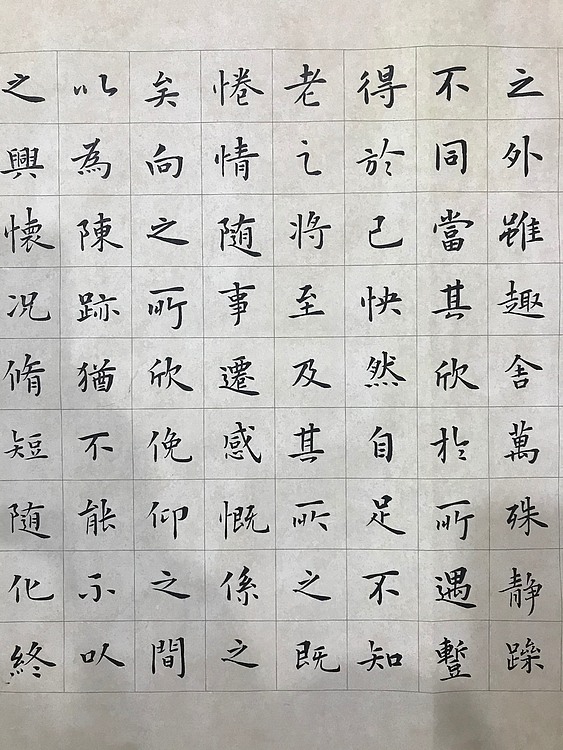 之外雖趣舍萬殊静躁
不同當其欣於所遇蹔
得於己快然自足不知
老之將至及其所之既
惓情随事遷感慨係之
矣向之所欣俛仰之間
以為陳跡猶不能不以
之興懷况脩短随化終